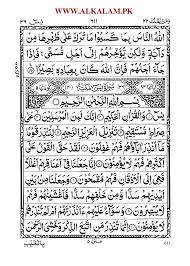 WWW.ALKALAM.PK
اللهُ النَّاسَ بِمَا كَسَبُوْا مَا تَرَكَ عَلٰى ظَهْرِهَا مِنْ
دَآبَّةٍ وَّلٰكِنْ يُّؤَخِّرُهُمْ اِلٰٓى اَجَلٍ مُّسَمًّى ۚ فَاِذَا
جَآءَ اَجَلُهُمْ فَاِنَّ اللهَ كَانَ بِعِبَادِهٖ بَصِيْرًا
بِسْمِ اللهِ الرَّحْمٰنِ الرَّحِيْمِ
يٰسٓ وَالْقُرْاٰنِ الْحَكِيْمِ اِنَّكَ لَمِنَ الْمُرْسَلِيْنَ عَلٰى
صِرَاطٍ مُّسْتَقِيْمٍ تَنْزِيْلَ الْعَزِيْزِ الرَّحِيْمِ لِتُنْذِرَ
قَوْمًا مَّآ اُنْذِرَ اٰبَآؤُهُمْ فَهُمْ غٰفِلُوْنَ لَقَدْ حَقَّ الْقَوْلُ
عَلٰٓى اَكْثَرِهِمْ فَهُمْ لَا يُؤْمِنُوْنَ اِنَّا جَعَلْنَا فِيْٓ اَعْنَاقِهِمْ
اَغْلٰلًا فَهِيَ اِلَى الْاَذْقَانِ فَهُمْ مُّقْمَحُوْنَ وَجَعَلْنَا مِنْۢ بَيْنِ
اَيْدِيْهِمْ سَدًّا وَّمِنْ خَلْفِهِمْ سَدًّا فَاَغْشَيْنٰهُمْ فَهُمْ
لَا يُبْصِرُوْنَ وَسَوَآءٌ عَلَيْهِمْ ءَاَنْذَرْتَهُمْ اَمْ لَمْ تُنْذِرْهُمْ
لَا يُؤْمِنُوْنَ اِنَّمَا تُنْذِرُ مَنِ اتَّبَعَ الذِّكْرَ وَخَشِيَ الرَّحْمٰنَ
بِالْغَيْبِ